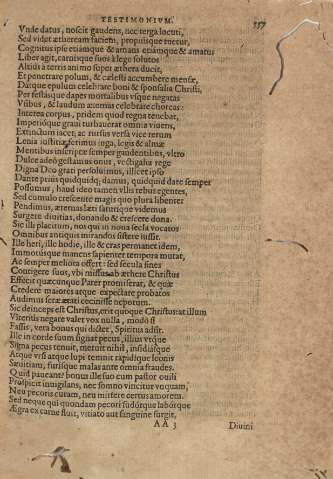 TESTIMONIUM. 357
Vnde datus, noscit gaudens, nec terga locuti,
Sed videt ætheream faciem, propiusque tuetur,
Cognitus ipse etiamque & amans etiamque & amatus
Liber agit, carnisque suos à lege solutos
Altius à terris animo super æthera ducit,
Et penetrare polum, & cælesti accumbere mensæ,
Datque epulum celebrare boni & sponsalia Christi,
Per festasque dapes mortalibus vsque negatas
Vsibus, & laudum æternas celebrare choreas:
Interea corpus, pridem quod regna tenebat,
Imperiòque graui turbauerat omnia viuens,
Extinctum iacet, ac rursus versa vice rerum
Lenia iustitiæ ferimus iuga, legis & almæ
Mentibus inscriptæ semper gaudentibus, vltro
Dulce adeò gestamus onus, vectigalia rege
Digna Deo grati persoluimus, illicet ipso
Dante prius quidquid damus, quidquid date semper
Possumus, haud ideo tamen vllis rebus egentes,
Sed cumulo crescente magis quo plura libenter
Pendimus, æternas læti saturique videmus
Surgere diuitias, donando & crescere dona.
Sic illi placitum, nos qui in noua secla vocatos
Omnibus antiquis mirandos sistere iussit.
Ille heri, ille hodie, ille & cras permanet idem,
Immotusque manens sapienter tempora mutat,
Ac semper meliora offert: sed secula sines
Contigere suos, vbi missus ab æthere Christus
Effecit quæcunque Pater promiserat, & quæ
Credere maiores atque expectare probatos
Audimus seræ ætati cecinisse nepotum.
Sic deinceps est Christus, erit quoque Christus: at illum
Viceritis negare valet vox nulla, modò si
Fassis, vera bonus qui dictet, Spiritus adsit.
Ille in corde suum signat pecus, illius vtque
Signa pecus tenuit, meruit nihil, insidiasque
Atque vrsi atque lupi temnit rapidique leonis
Sæuitiam, furisque malas ante omnia fraudes.
Quid paueant? bonus ille suo cum pastor ouili
Prospicit inuigilans, nec somno vincitur vnquam,
Neu pecoris curam, neu mittere certus amorem.
Sed neque qui quondam pecori sudórque labórque
Ægra ex carne fluit, vitiato aut sanguine surgit,
AA 3 Diuini